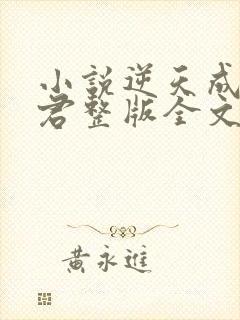 小説逆天成
君整版全文
黄永進